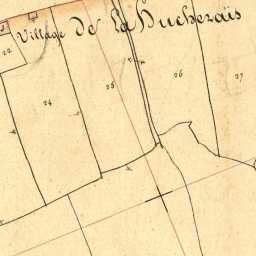 Village De La Ducherais
22
24
25
26
27